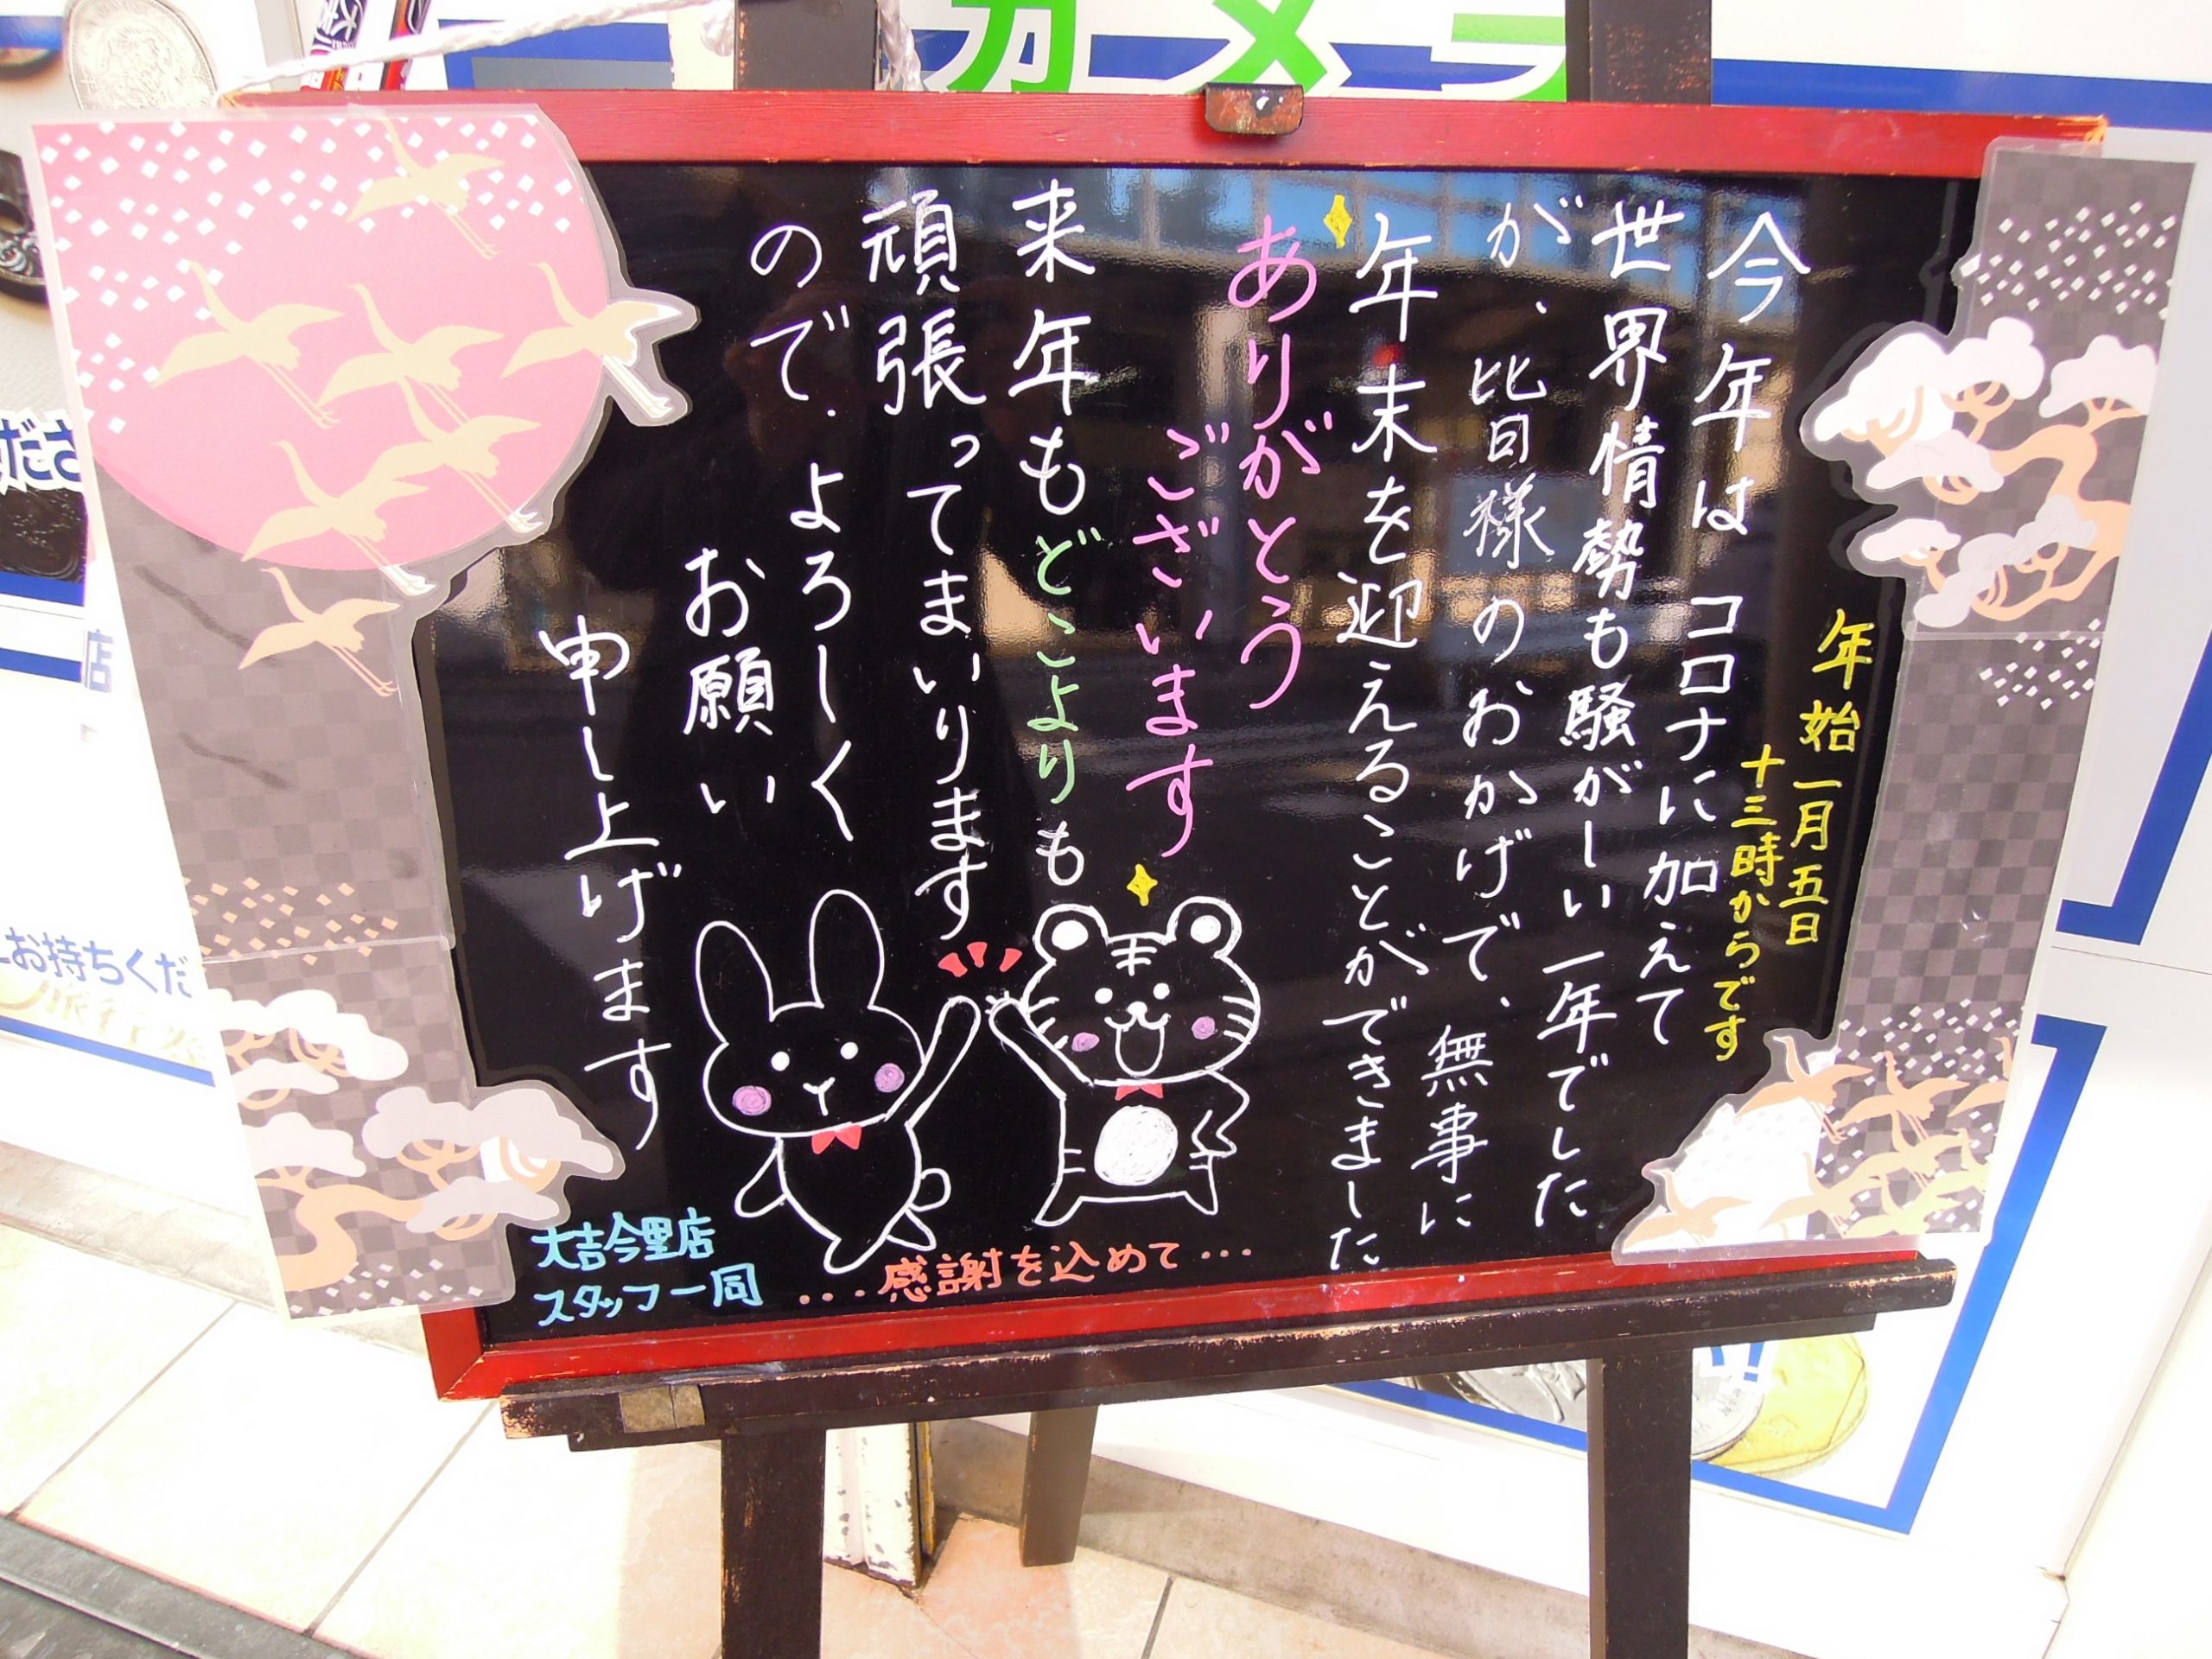 カメラ
年始一月五日
十三時からです
今年はコロナに加えて
世界情勢も騒がしい一年でした
が、皆様のおかげで、無事に
年末を迎えることができました
ありがとう
ございます
来年もどこよりも
頑張ってまいります
ので、よろしく
お願い
申し上げます
…感謝を込めて…
大吉今里店
スタッフ一同
ださ
店
お持ちくだ